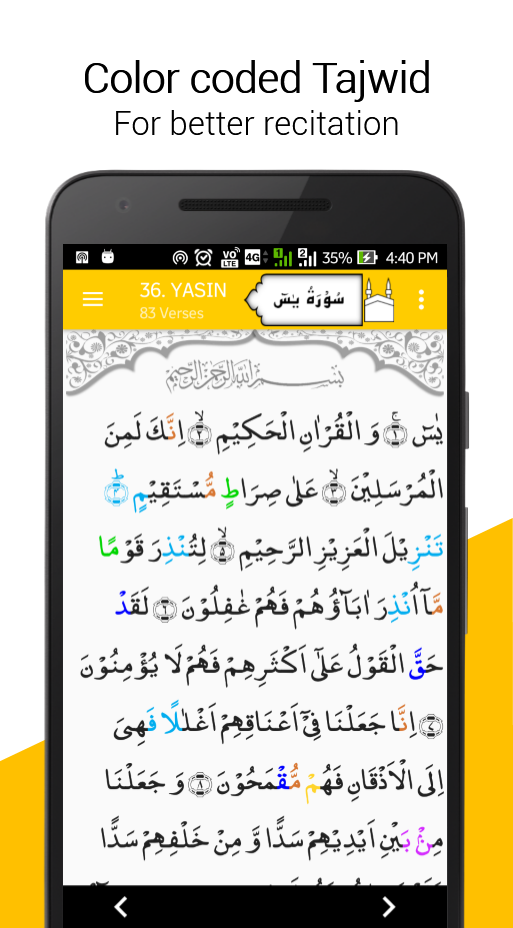 Color coded Tajwid
For better recitation
VO LTE 4G 1 2 35% 4:40 PM
36. YASIN
83 Verses
سُوْرَةُ يٰسٓ
بِسْمِ اللّٰهِ الرَّحْمٰنِ الرَّحِيْمِ
يٰسٓ ﴿۱﴾ۚ وَ الْقُرْاٰنِ الْحَكِيْمِ ﴿۲﴾ۙ اِنَّكَ لَمِنَ
الْمُرْسَلِيْنَ ﴿۳﴾ۙ عَلٰى صِرَاطٍ مُّسْتَقِيْمٍ ﴿۴﴾ؕ
تَنْزِيْلَ الْعَزِيْزِ الرَّحِيْمِ ﴿۵﴾ۙ لِتُنْذِرَ قَوْمًا
مَّاۤ اُنْذِرَ اٰبَآؤُهُمْ فَهُمْ غٰفِلُوْنَ ﴿۶﴾ لَقَدْ
حَقَّ الْقَوْلُ عَلٰۤى اَكْثَرِهِمْ فَهُمْ لَا يُؤْمِنُوْنَ
﴿۷﴾ اِنَّا جَعَلْنَا فِىْۤ اَعْنَاقِهِمْ اَغْلٰلًا فَهِىَ
اِلَى الْاَذْقَانِ فَهُمْ مُّقْمَحُوْنَ ﴿۸﴾ وَ جَعَلْنَا
مِنْۢ بَيْنِ اَيْدِيْهِمْ سَدًّا وَّ مِنْ خَلْفِهِمْ سَدًّا